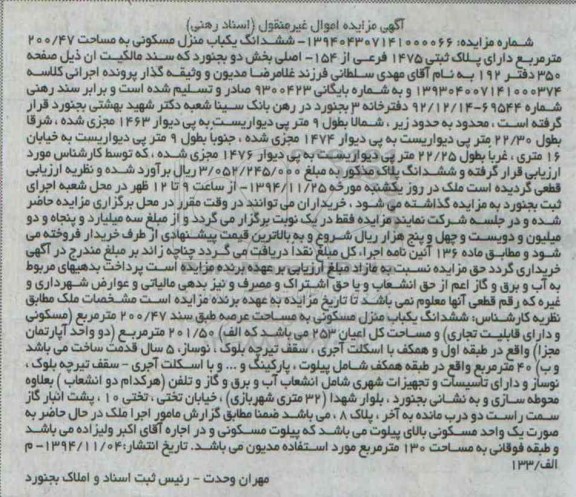 آگهی مزایده اموال غیرمنقول (اسناد رهنی)
شماره مزایده: ۱۳۹۴۰۴۳۰۷۱۴۱۰۰۰۰۶۶- ششدانگ یکباب منزل مسکونی به مساحت ۲۰۰/۴۷
مترمربع دارای پلاک ثبتی ۱۴۷۵ فرعی از ۱۵۴- اصلی بخش دو بجنورد که سند مالکیت آن ذیل صفحه
۳۵۰ دفتر ۱۹۲ به نام آقای مهدی سلطانی فرزند غلامرضا مدیون و وثیقه گذار پرونده اجرائی کلاسه
۱۳۹۳۰۴۰۰۷۱۴۱۰۰۰۳۷۴ و به شماره بایگانی ۹۳۰۰۴۲۳ صادر و تسلیم شده است و برابر سند رهنی
شماره ۶۹۵۴۴-۹۲/۱۲/۱۴ دفترخانه ۳ بجنورد در رهن بانک سینا شعبه دکتر شهید بهشتی بجنورد قرار
گرفته است ، محدود به حدود زیر ، شمالا بطول ۹ متر پی دیواریست به پی دیوار ۱۴۶۳ مجزی شده ، شرقا
بطول ۲۲/۳۰ متر پی دیواریست به پی دیوار ۱۴۷۴ مجزی شده ، جنوبا بطول ۹ متر پی دیواریست به خیابان
۱۶ متری ، غربا بطول ۲۲/۲۵ متر پی دیواریست به پی دیوار ۱۴۷۶ مجزی شده ، که توسط کارشناس مورد
ارزیابی قرار گرفته و ششدانگ پلاک مذکور به مبلغ ۳/۰۵۲/۲۴۵/۰۰۰ ریال برآورد شده و نظریه ارزیابی
قطعی گردیده است ملک در روز یکشنبه مورخه ۱۳۹۴/۱۱/۲۵- از ساعت ۹ تا ۱۲ ظهر در محل شعبه اجرای
ثبت بجنورد به مزایده گذاشته می شود ، خریداران می توانند در وقت مقرر در محل برگزاری مزایده حاضر
شده و در جلسه شرکت نمایند مزایده فقط در یک نوبت برگزار می گردد و از مبلغ سه میلیارد و پنجاه و دو
میلیون و دویست و چهل و پنج هزار ریال شروع و به بالاترین قیمت پیشنهادی از طرف خریدار فروخته می
شود و مطابق ماده ۱۳۶ آئین نامه اجرا، کل مبلغ نقدا دریافت می گردد چناچه زائد بر مبلغ مندرج در آگهی
خریداری گردد حق مزایده نسبت به مازاد مبلغ ارزیابی بر عهده برنده مزایده است پرداخت بدهیهای مربوط
به آب و برق و گاز اعم از حق انشعاب و یا حق اشتراک و مصرف و نیز بدهی مالیاتی و عوارض شهرداری و
غیره که رقم قطعی آنها معلوم نمی باشد تا تاریخ مزایده به عهده برنده مزایده است مشخصات ملک مطابق
نظریه کارشناس: ششدانگ یکباب منزل مسکونی به مساحت عرصه طبق سند ۲۰۰/۴۷ مترمربع (مسکونی
و دارای قابلیت تجاری) و مساحت کل اعیان ۲۵۳ می باشد که الف) ۲۰۱/۵۰ مترمربع (دو واحد آپارتمان
مجزا) واقع در طبقه اول و همکف با اسکلت آجری ، سقف تیرچه بلوک ، نوساز، ۵ سال قدمت ساخت می باشد
و ب) ۴۰ مترمربع واقع در طبقه همکف شامل پیلوت ، پارکینگ و ... و با اسکلت آجری - سقف تیرچه بلوک ،
نوساز و دارای تاسیسات و تجهیزات شهری شامل انشعاب آب و برق و گاز و تلفن (هرکدام دو انشعاب ) بعلاوه
محوطه سازی و به نشانی بجنورد ، بلوار شهدا (۳۲ متری شهربازی) ، خیابان تختی، تختی ۱۰ ، پشت انبار گاز
سمت راست دو درب مانده به آخر ، پلاک ۸ ، می باشد ضمنا مطابق گزارش مامور اجرا ملک در حال حاضر به
صورت یک واحد مسکونی بالای پیلوت می باشد که پیلوت مسکونی و در اجاره آقای اکبر ولیزاده می باشد
و طبقه فوقانی به مساحت ۱۳۰ مترمربع مورد استفاده مدیون می باشد. تاریخ انتشار: ۱۳۹۴/۱۱/۰۴- م
الف/۱۳۳
مهران وحدت - رئیس ثبت اسناد و املاک بجنورد